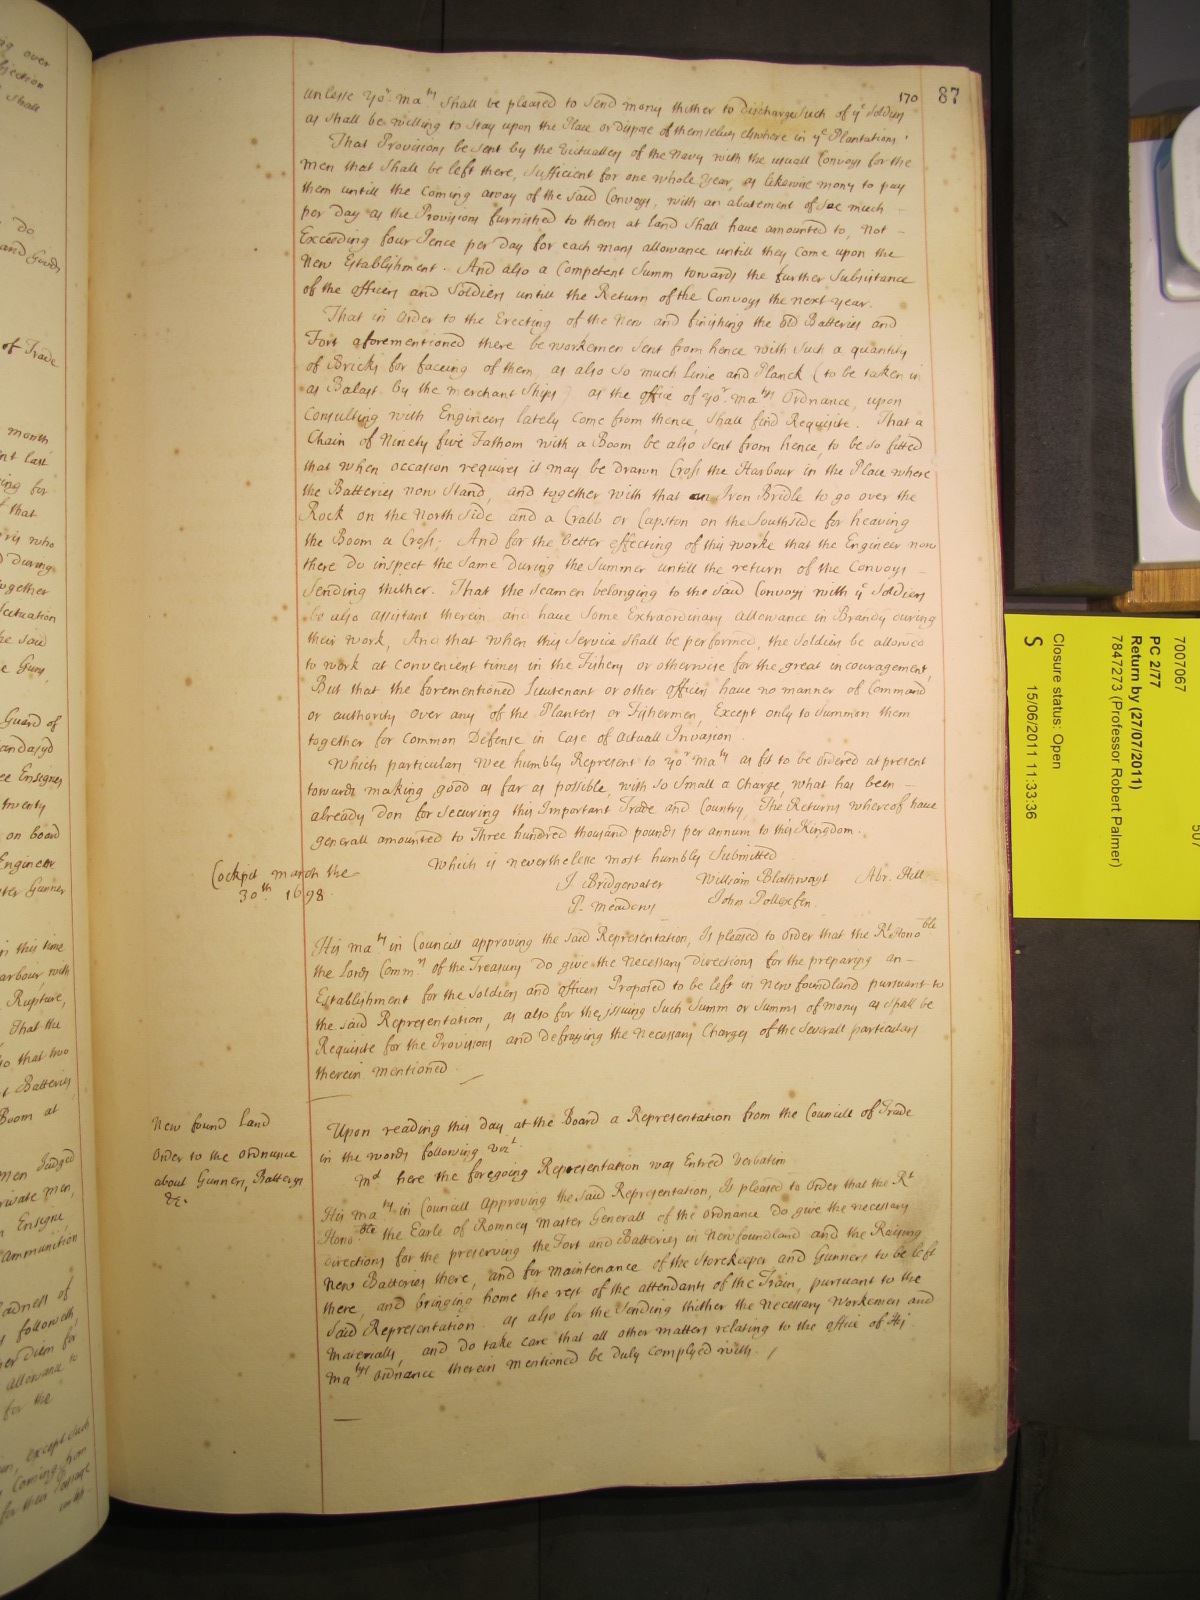 170 87
unlesse yor. Maty shall be pleased to send mony thither to discharge such of ye Soldiers
as shall be willing to stay upon the Place or dispose of themselves elswhere in ye Plantations.
That Provisions be sent by the Victuallers of the Navy with the usuall Convoys for the
men that shall be left there, sufficient for one whole year, as likewise mony to pay
them untill the coming away of the said Convoys, with an abatement of soe much
per day as the Provisions furnished to them at land shall have amounted to, not
Exceeding four Pence per day for each mans allowance untill they come upon the
New Establishment. And also a Competent Summ towards the further Subsistance
of the officers and Soldiers untill the Return of the Convoys the next year.
That in order to the Erecting of the New and finishing the old Batteries and
Fort aforementioned there be workemen sent from hence with such a quantity
of Bricks for faceing of them, as also so much lime and Planck (to be taken in
as Balast by the merchant ships) as the office of yor. Matys Ordnance, upon
Consulting with Engineers lately come from thence, shall find Requisite. That a
Chain of Ninety five Fathom with a Boom be also sent from hence, to be so fitted
that when occasion requires it may be drawn Cross the Harbour in the Place where
the Batteries now stand, and together with that an Iron Bridle to go over the
Rock on the North side and a Crabb or Capston on the Southside for heaving
the Boom a Cross; And for the better effecting of this worke that the Engineer now
there do inspect the same During the Summer untill the return of the Convoys
sending thither. That the seamen belonging to the said Convoys with ye Soldiers
be also assistant therein and have some Extraordinary allowance in Brandy during
their work, And that when this service shall be performed, the Soldiers be allowed
to work at Convenient times in the Fishery or otherwise for the great incouragement,
But that the forementioned Lieutenant or other officers have no manner of Command
or authority over any of the Planters or Fishermen, Except only to Summon them
together for Common Defense in Case of actuall Invasion
Which particulars wee humbly Represent to yor Maty as fit to be ordered at present
towards making good as far as possible, with so small a Charge, what has been
already don for securing this Important Trade and Country, The Returns whereof have
generall amounted to Three hundred thousand pounds per annum to this Kingdom.
Which is nevertheless most humbly Submitted
Cockpit march the
30th 1698.
J Bridgewater William Blathwayt Abr. Hill
P. Meadows John Pollexfen
His Maty in Councill approving the said Representation, Is pleased to order that the Rt Honoble
the Lords Commrs of the Treasury do give the necessary directions for the preparing an
Establishment for the Soldiers and officers Proposed to be left in Newfoundland pursuant to
the said Representation, as also for the issuing such Summ or Summs of mony as shall be
Requisite for the Provisions and defraying the necessary Charges of the severall particulars
therein mentioned
New found Land
Order to the Ordnance
about Gunners, Batterys
&c.
Upon reading this day at the Board a Representation from the Councill of Trade
in the words following vizt
Md here the foregoing Representation was Entred Verbatim
His Maty in Councill Approving the said Representation, Is pleased to Order that the Rt
Honoble the Earle of Romney Master Generall of the Ordnance Do give the necessary
directions for the preserving the Fort and Batteries in Newfoundland and the Raising
New Batteries there, and for maintenance of the Storekeeper and Gunners to be left
there, and bringing home the rest of the attendants of the Train, pursuant to the
said Representation as also for the sending thither the necessary Workemen and
Materialls, and do take care that all other matters relating to the office of His
Matys Ordnance therein mentioned be duly complyed with.
7007067
PC 2/77
Return by (27/07/2011)
7847273 (Professor Robert Palmer)
Closure status: Open
S 15/06/2011 11:33:36